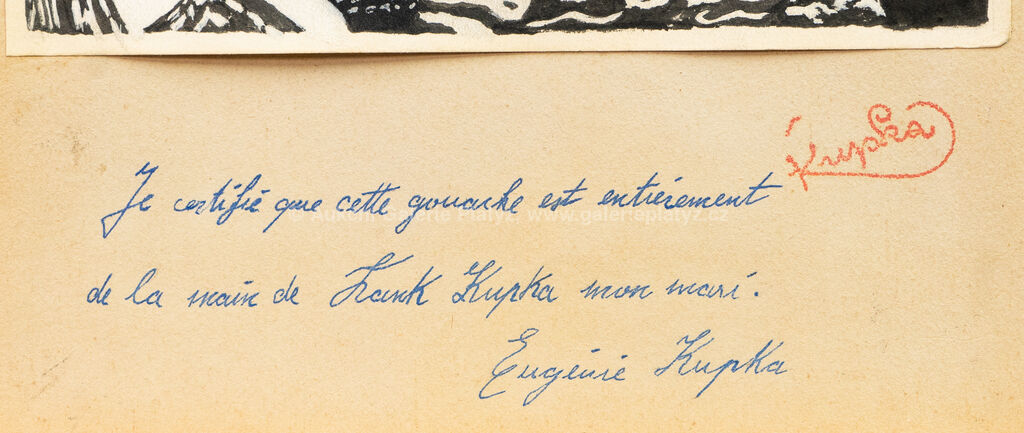 Kupka
Je certifie que cette gouache est entiérement
de la main de Frank Kupka mon mari.
Eugénie Kupka
www.galerieplatyz.cz